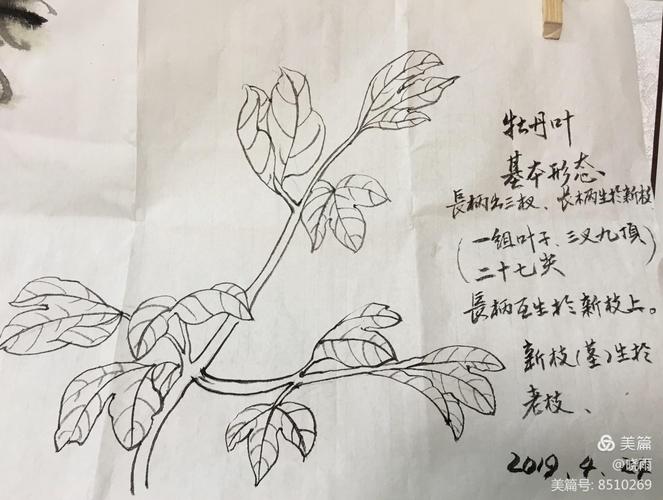 牡丹叶
基本形态
長柄出三杈、長柄生於新枝
(一组叶子、三叉九頂
二十七尖)
長柄互生於新枝上。
新枝(茎)生於
老枝、
2019.4.24
美篇
@晓雨
美篇号: 8510269